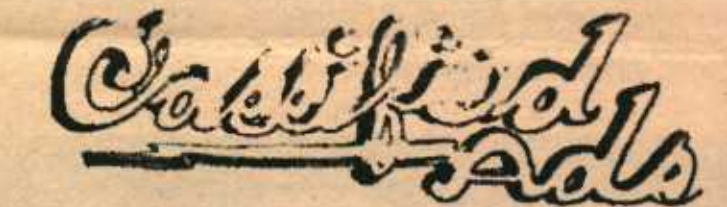 Classified
Ads